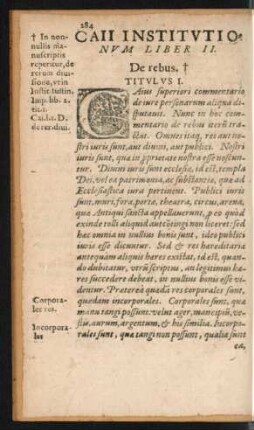 284
CAII INSTITVTIO-
NVM LIBER II.
De rebus. †
TITVLVS I.
† In non-
nullis ma-
nuscriptis
reperitur, de
rerum diui-
sione, vt in
Instit. Iustin.
Imp. lib. 2.
tit. 1.
Cai. li. D.
de rer. diui.
CAius superiori commentario
de iure personarum aliqua di-
sputauit. Nunc in hoc com-
mentario de rebus uerò tra-
ctat. Omnes itaq, res aut no-
stri iuris sunt, aut diuini, aut publici. Nostri
iuris sunt, quæ in proprietate nostra esse noscun-
tur. Diuini iuris sunt ecclesiæ, id est, templa
Dei, vel ea patrimonia, ac substantiæ, quæ ad
Ecclesiastica iura pertinent. Publici iuris
sunt, muri, fora, portæ, theatra, circus, arena,
quæ Antiqui sancta appellauerunt, p eo quòd
exinde tolli aliquid aut cōtingi non liceret: sed
hæc omnia in nullius bonis sunt, ideo publici
iuris esse dicuntur. Sed & res hereditaria
antequàm aliquis hæres existat, id est, quan-
do dubitatur, verū scriptus, an legitimus hæ-
res succedere debeat, in nullius bonis esse vi-
dentur. Præterea quædā res corporales sunt,
quædam incorporales. Corporales sunt, quæ
manu tangi possunt: velut ager, mancipiū, ve-
stis. aurum, argentum, & his similia. Incorpo-
rales sunt, quæ tangi non possunt, qualia sunt
ea,
Corpora-
les res.
Incorpora-
les